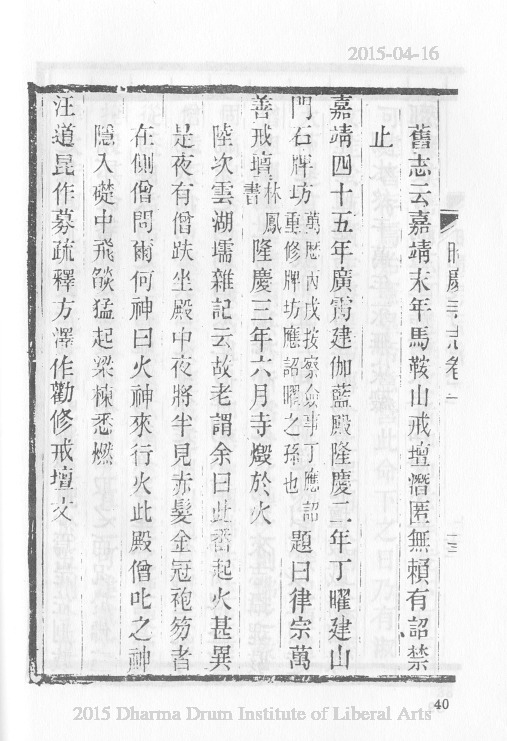 2015-04-16
昭慶寺志卷一
十三
舊志云嘉靖末年馬鞍山戒壇潛匿無賴有詔禁
止
嘉靖四十五年廣霄建伽藍殿隆慶二年丁曜建山
門石牌坊萬曆丙戌按察僉事丁應詔
重修牌坊應詔曜之孫也題曰律宗萬
善戒壇林鳳
書隆慶三年六月寺燬於火
陸次雲湖壖雜記云故老謂余曰此番起火甚異
是夜有僧趺坐殿中夜將半見赤髮金冠袍笏者
在側僧問爾何神曰火神來行火此殿僧叱之神
隱入礎中飛燄猛起梁棟悉燃
汪道昆作募疏釋方澤作勸修戒壇文
40
2015 Dharma Drum Institute of Liberal Arts